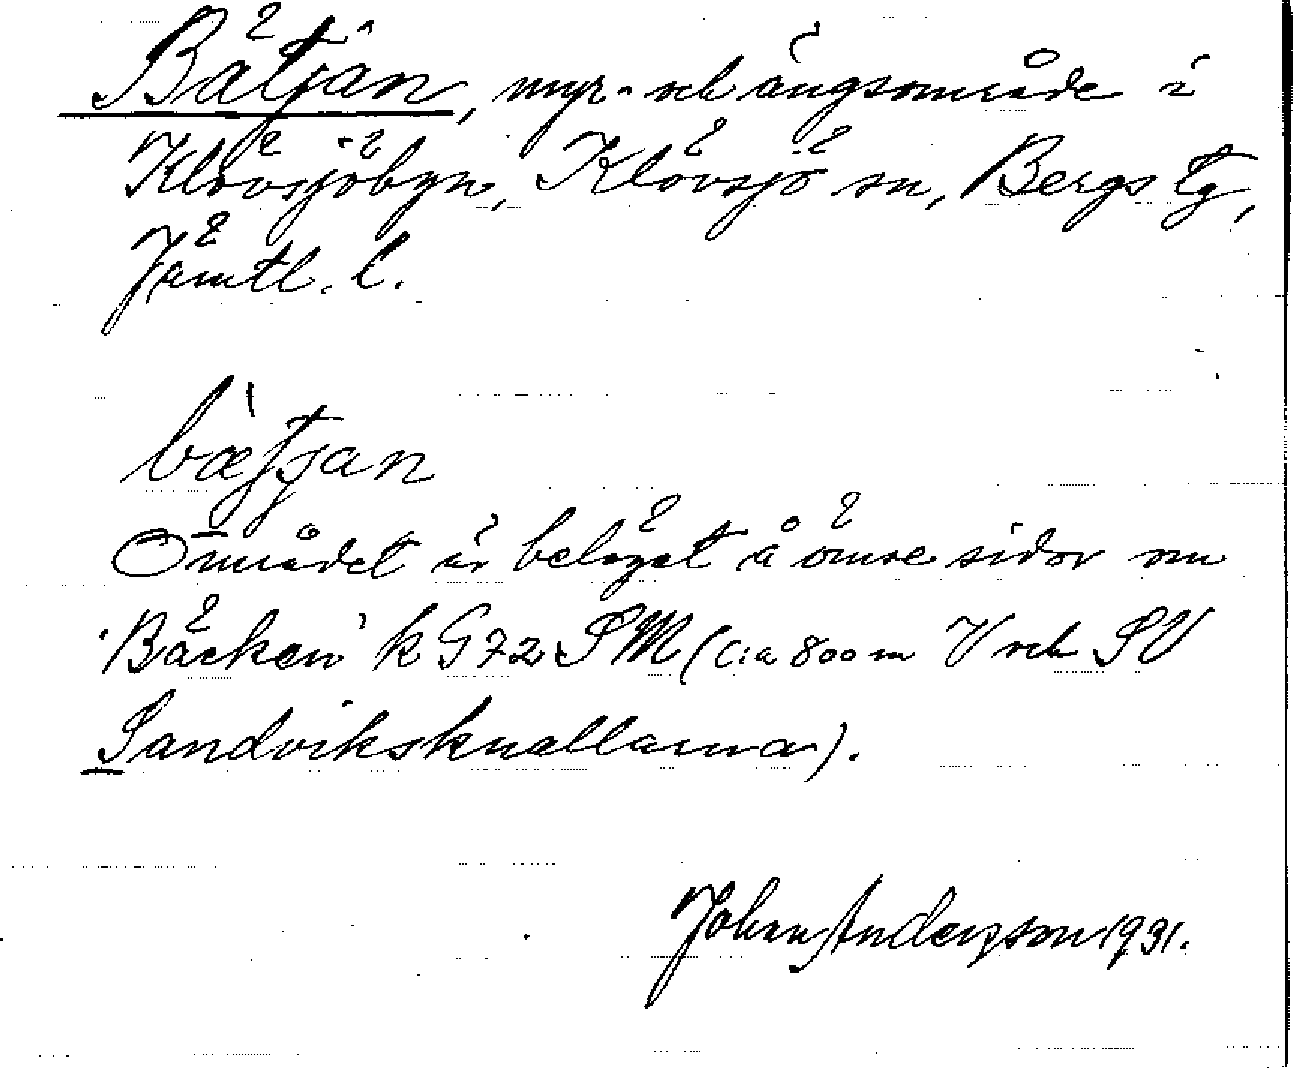 Bätjän, myr- och ängsområde i
Klövsjöbyn, Klövsjö sn, Bergs tg,
Jämtl. l.
bætjan
Området är beläget å ömse sidor om
'Bäcken' k G72 SM (cia 800 m V och SV
Sandviksknallarna).
Johan Andersson 1931.